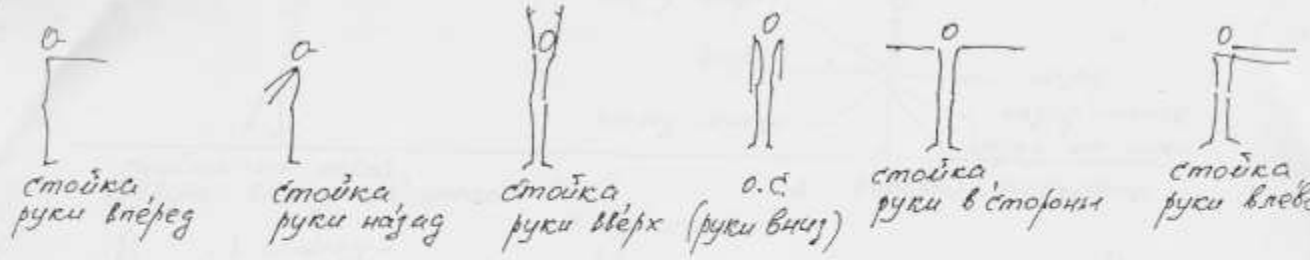 стойка,
руки вперед
стойка
руки назад
стойка
руки вверх
о.с.
(руки вниз)
стойка,
руки в стороны
стойка,
руки влево